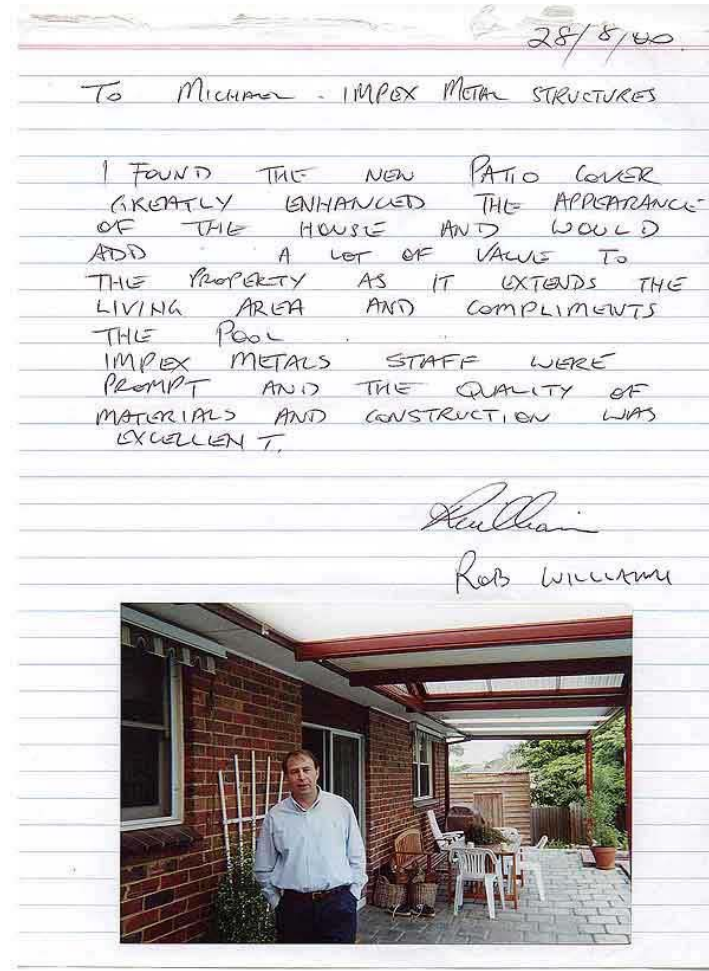 28/8/00
TO MICHAEL - IMPEX METAL STRUCTURES
I FOUND THE NEW PATIO COVER
GREATLY ENHANCED THE APPEARANCE
OF THE HOUSE AND WOULD
ADD A LOT OF VALUE TO
THE PROPERTY AS IT EXTENDS THE
LIVING AREA AND COMPLIMENTS
THE POOL.
IMPEX METALS STAFF WERE
PROMPT AND THE QUALITY OF
MATERIALS AND CONSTRUCTION WAS
EXCELLENT.
ROB WILLIAMS